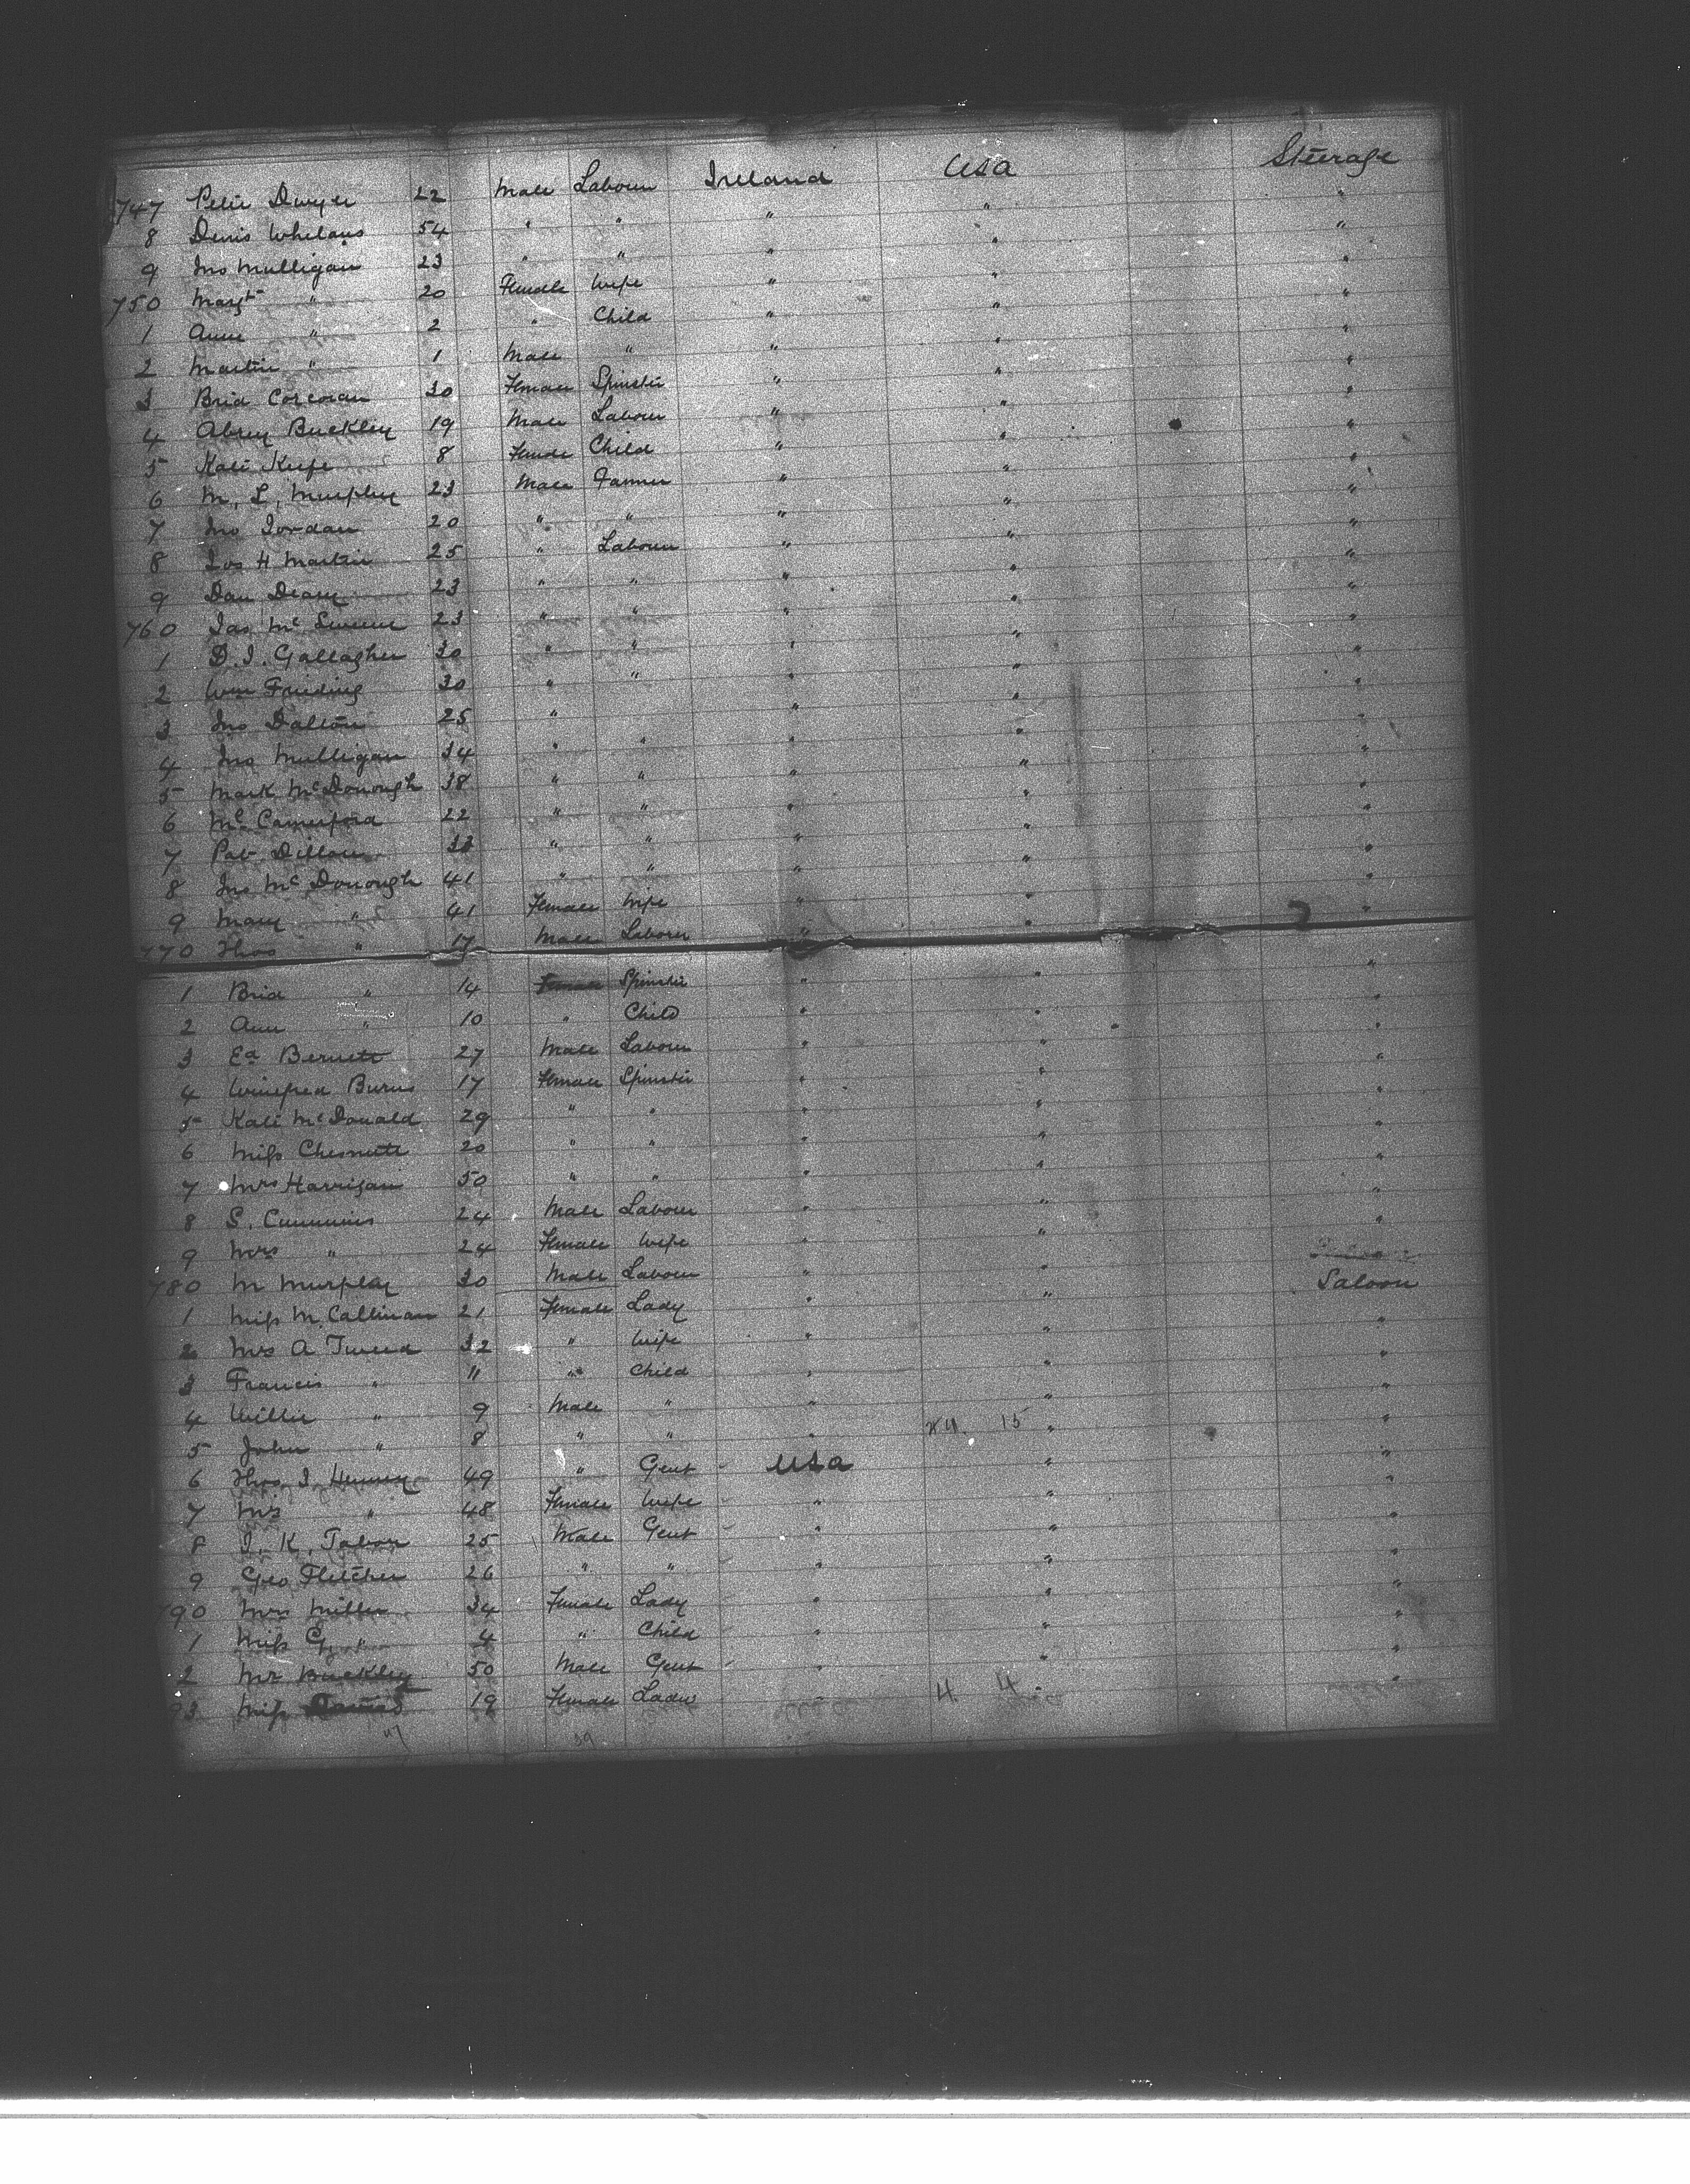 747 Peter Dwyer 22 Male Labourer Ireland USA Steerage
8 Denis Whelans 54 " " " " "
9 Jno Mulligan 23 " " " " "
750 Margt " 20 Female Wife " " "
1 Anne " 2 " Child " " "
2 Martin " 1 Male " " " "
3 Brid Corcoran 30 Female Spinster " " "
4 Buckley 19 Male Labour " " "
5 Kate Keefe 8 Female Child " " "
6 M. L. Murphy 23 Male Farmer " " "
7 Jno Jordan 20 " " " " "
8 Jos H Martin 25 " Labour " " "
9 Dan 23 " " " " "
760 Jas Mc 23 " " " " "
1 D. J. Gallagher 30 " " " " "
2 Wm 30 " " " " "
3 Jno Dalton 25 " " " "
4 Jno Mulligan 34 " " " " "
5 Mark McDonough 38 " " " " "
6 Mc Camerford 22 " " " " "
7 Pat Dillon 33 " " " " "
8 Jno McDonough 41 " " " " "
9 Mary " 41 Female Wife " " "
770 Thos " 17 Male Labour " "
1 Brid " 14 Female Spinster " " "
2 Ann " 10 " Child " " "
3 Ed Bernett 27 Male Labour " " "
4 Winefred Burns 17 Female Spinster " " "
5 Kate McDonald 29 " " " " "
6 Miss Chesnutt 20 " " " " "
7 Mrs Harrigan 50 " " " " "
8 S. Cummins 24 Male Labour " " "
9 Mrs " 24 Female Wife " " "
780 M Murphy 30 Male Labour " "
1 Miss M. Callinan 21 Female Lady " " Saloon
2 Mrs A Tweed 32 " Wife " " "
3 Francis " 11 " Child " " "
4 Willie " 9 Male " " " "
5 John " 8 " " " 15 " "
6 Thos J. 49 " Gent USA " "
7 Mrs " 48 Female Wife " " "
8 J. K. Tabor 25 Male Gent " " "
9 Geo Fletcher 26 " " " " "
790 Mrs Miller 34 Female Lady " " "
1 Miss G. " 4 " Child " " "
2 Mr Buckley 50 Male Gent " " "
93 Miss 19 Female Lady " 4 4 " "